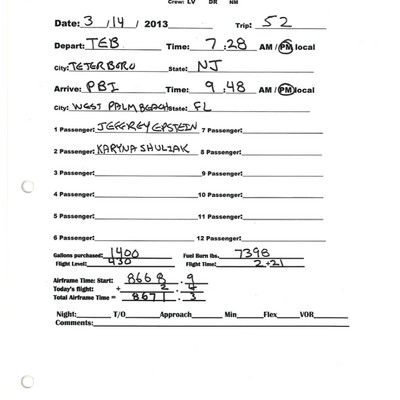 Crew: LV DR NM
Date: 3 / 14 / 2013 Trip: 52
Depart: TEB Time: 7 : 28 AM / PM local
City: TETERBORO State: NJ
Arrive: PBI Time: 9 : 48 AM / PM local
City: WEST PALM BEACH State: FL
1 Passenger: JEFFREY EPSTEIN 7 Passenger:
2 Passenger: KARYNA SHULIAK 8 Passenger:
3 Passenger: 9 Passenger:
4 Passenger: 10 Passenger:
5 Passenger: 11 Passenger:
6 Passenger: 12 Passenger:
Gallons purchased: 1400 Fuel Burn lbs. 7398
Flight Level: 430 Flight Time: 2+21
Airframe Time: Start: 8668 . 9
Today's flight: + 2 . 4
Total Airframe Time = 8671 . 3
Night: T/O Approach Min Flex VOR
Comments: